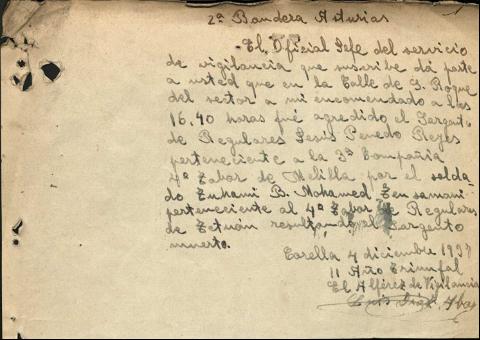 2ª Bandera Asturias
El Oficial Jefe del servicio
de vigilancia que suscribe dá parte
a usted que en la Calle de S. Roque
del sector a mi encomendado a las
16,40 horas fué agredido el Sargento
de Regulares Jesús Penedo Reyes
perteneciente a la 3ª Compañia
4º Tabor de Melilla por el solda-
do B. Mohamed
perteneciente al 4º Tabor de Regulares
de Tetuán resultando el Sargento
muerto.
Corella 4 diciembre 1937
II Año Triunfal
El Alférez de Vigilancia
Luis